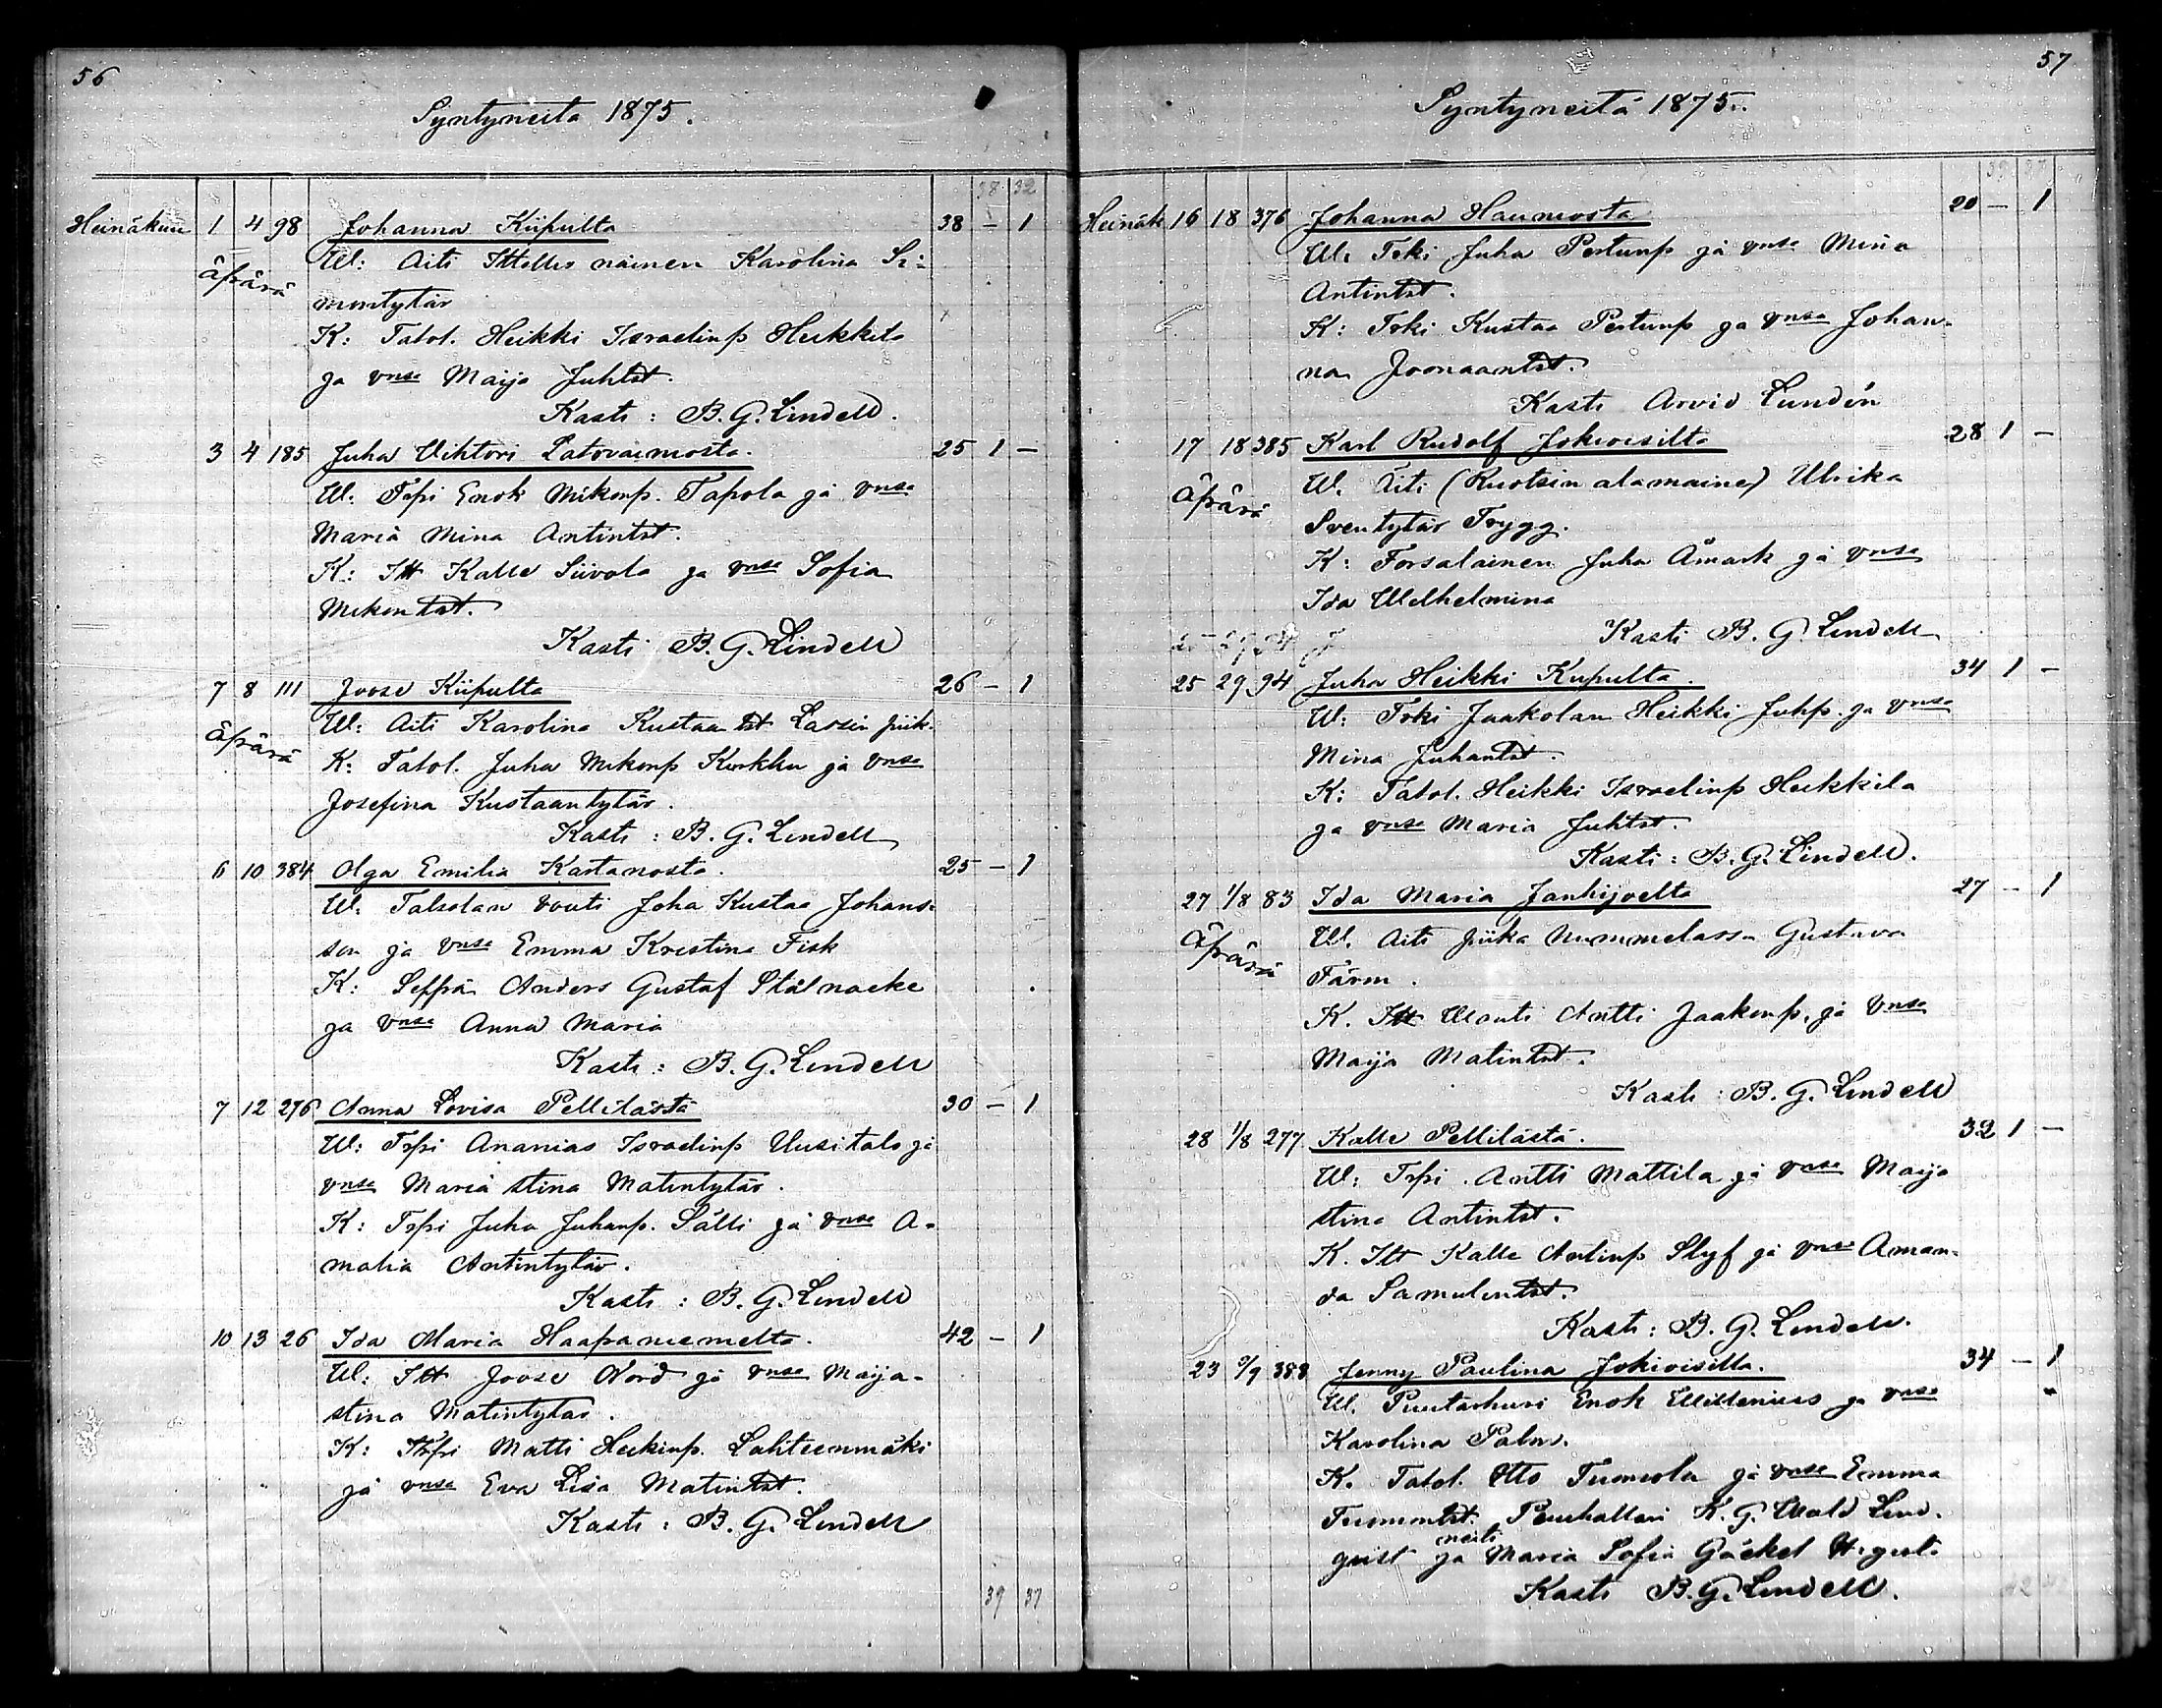 56
Syntyneitä 1875.
38 32
Heinäkuu 1 4 98 Johanna Kiipulta 38 – 1
Äpärä W: Äiti Ittellis nainen Karolina Si-
montytär
K: Talol. Heikki Israelinp Heikkilä
ja vnsa Maija Juhtst.
Kasti: B. G. Lindell.
3 4 185 Juha Vihtori Latovaimosta. 25 1 –
W. Trpi Enok Mikonp. Tapola ja vnsa
Maria Mina Antintst.
K: Itt Kalle Siivola ja vnsa Sofia
Mikontst.
Kasti B. G. Lindell
7 8 111 Joose Kiipulta 26 – 1
Äpärä W: Äiti Karolina Kustaantst Lassin piik.
K: Talol. Juha Mikonp Kirkku ja vnsa
Josefina Kustaantytär.
Kasti: B. G. Lindell
6 10 384 Olga Emilia Kartanosta. 25 – 1
W: Talsolan vouti Joha Kustaa Johans-
son ja vnsa Emma Kristina Fisk
K: Seppä Anders Gustaf Stålnacke
ja vnsa Anna Maria
Kasti: B. G. Lindell
7 12 276 Anna Lovisa Pellilästä 30 – 1
W: Trpi Ananias Israelinp Uusitalo ja
vnsa Maria Stina Matintytär.
K: Trpi Juha Juhanp. Sälli ja vnsa A-
malia Antintytär.
Kasti: B. G. Lindell
10 13 26 Ida Maria Haapaniemeltä. 42 – 1
W: Itt Joose Nord ja vnsa Maija-
stina Matintytär.
K: Trpi Matti Heikinp. Lähteenmäki
ja vnsa Eva Lisa Matintst.
Kasti: B. G. Lindell
39 37
57
Syntyneitä 1875.
39 37
Heinäk 16 18 376 Johanna Hauniosta 20 – 1
W. Trki Juha Pertunp ja vnsa Mina
Antintst.
K: Trki Kustaa Pertunp ja vnsa Johan-
na Joonaantst.
Kasti Arvid Lundén
17 18 385 Karl Rudolf Jokioisilta 28 1 –
Äpärä W. Äiti (Ruotsin alamainen) Ulrika
Sventytär Trygg.
K: Forsalainen Juha Åmark ja vnsa
Ida Wilhelmina
Kasti B. G. Lindell
25 29 94 J
25 29 94 Juha Heikki Kiipulta. 34 1 –
W: Trki Jaakolan Heikki Juhp. ja vnsa
Mina Juhantst.
K: Talol. Heikki Israelinp Heikkilä
ja vnsa Maria Juhtst.
Kasti: B. G. Lindell.
27 1/8 83 Ida Maria Jänhijoelta 27 – 1
Äpärä W. Äiti piika Nummelassa Gustava
Färm.
K. Itt Wouti Antti Jaakonp. ja vnsa
Maija Matintst.
Kasti: B. G. Lindell
28 1/8 277 Kalle Pellilästä. 32 1 –
W: Trpi. Antti Mattila ja vnsa Maija
Stina Antintst.
K. Itt Kalle Antinp Slyf ja vnsa Aman-
da Samulintst.
Kasti: B. G. Lindell.
23 5/9 388 Jenny Paulina Jokioisilta. 34 – 1
W. Puutarhuri Enok Willenius ja vnsa
Karolina Palm.
K. Talol. Otto Tuomola ja vnsa Emma
Tuomontst. Ruukallari K. G. Wald Lind-
qvist ja neiti Maria Sofia Gäckel
Kasti B. G. Lindell.